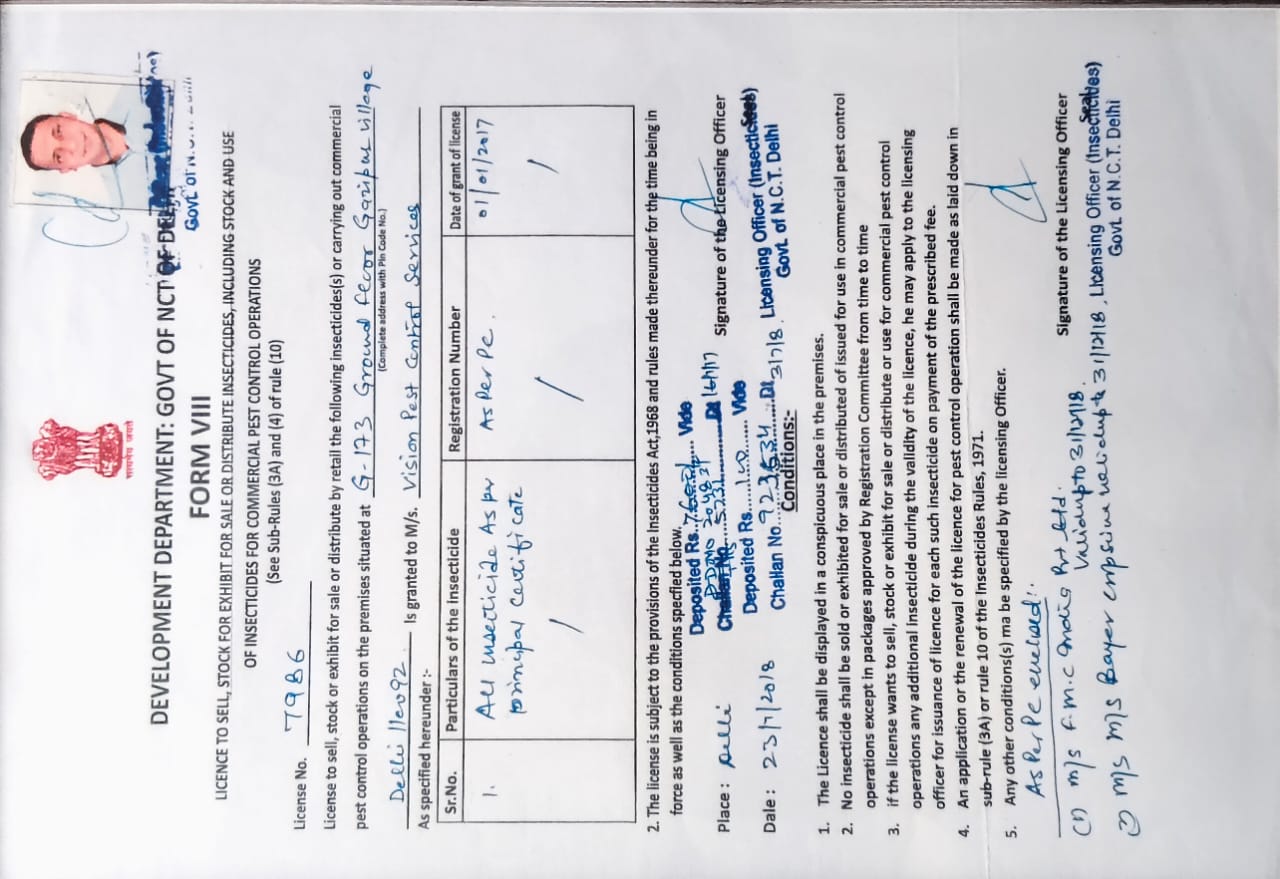 सत्यमेव जयते
DEVELOPMENT DEPARTMENT: GOVT OF NCT OF DELHI
Govt. of N.C.T. Delhi
FORM VIII
LICENCE TO SELL, STOCK FOR EXHIBIT FOR SALE OR DISTRIBUTE INSECTICIDES, INCLUDING STOCK AND USE
OF INSECTICIDES FOR COMMERCIAL PEST CONTROL OPERATIONS
(See Sub-Rules (3A) and (4) of rule (10)
License No. 7986
License to sell, stock or exhibit for sale or distribute by retail the following insecticides(s) or carrying out commercial
pest control operations on the premises situated at G-173 Ground Feoor Gazipur Village
(Complete address with Pin Code No.)
Delhi 110092 Is granted to M/s. Vision Pest Control Services
As specified hereunder :-
Sr.No. Particulars of the Insecticide Registration Number Date of grant of license
1. All insecticide As per As Per Pc. 01/01/2017
principal certificate
/ / /
2. The license is subject to the provisions of the Insecticides Act,1968 and rules made thereunder for the time being in
force as well as the conditions specified below.
Deposited Rs. Vide
Challan No. Dt
Place : Delhi Signature of the Licensing Officer
Deposited Rs. Vide
Licensing Officer (Insecticides)
Seal
Dale : 23/7/2018 Challan No. 923534 Dt 3/7/8. Govt. of N.C.T. Delhi
Conditions:-
1. The Licence shall be displayed in a conspicuous place in the premises.
2. No insecticide shall be sold or exhibited for sale or distributed of issued for use in commercial pest control
operations except in packages approved by Registration Committee from time to time
3. if the license wants to sell, stock or exhibit for sale or distribute or use for commercial pest control
operations any additional Insecticide during the validity of the licence, he may apply to the licensing
officer for issuance of licence for each such insecticide on payment of the prescribed fee.
4. An application or the renewal of the licence for pest control operation shall be made as laid down in
sub-rule (3A) or rule 10 of the Insecticides Rules, 1971.
5. Any other conditions(s) ma be specified by the licensing Officer.
As Per Pc
Signature of the Licensing Officer
(1) M/s F.M.C India Pvt Ltd. Valid upto 31/12/18.
Seal
(2) M/S Bayer valid upto 31/12/18, Licensing Officer (Insecticides)
Govt. of N.C.T. Delhi